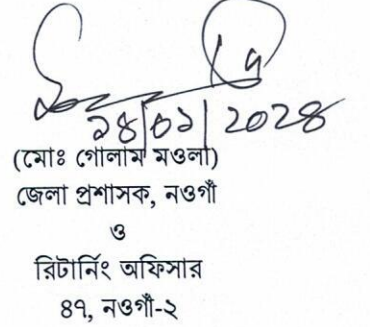 ১৪|০১|২০২৪
(মোঃ গোলাম মওলা)
জেলা প্রশাসক, নওগাঁ
ও
রিটার্নিং অফিসার
৪৭, নওগাঁ-২